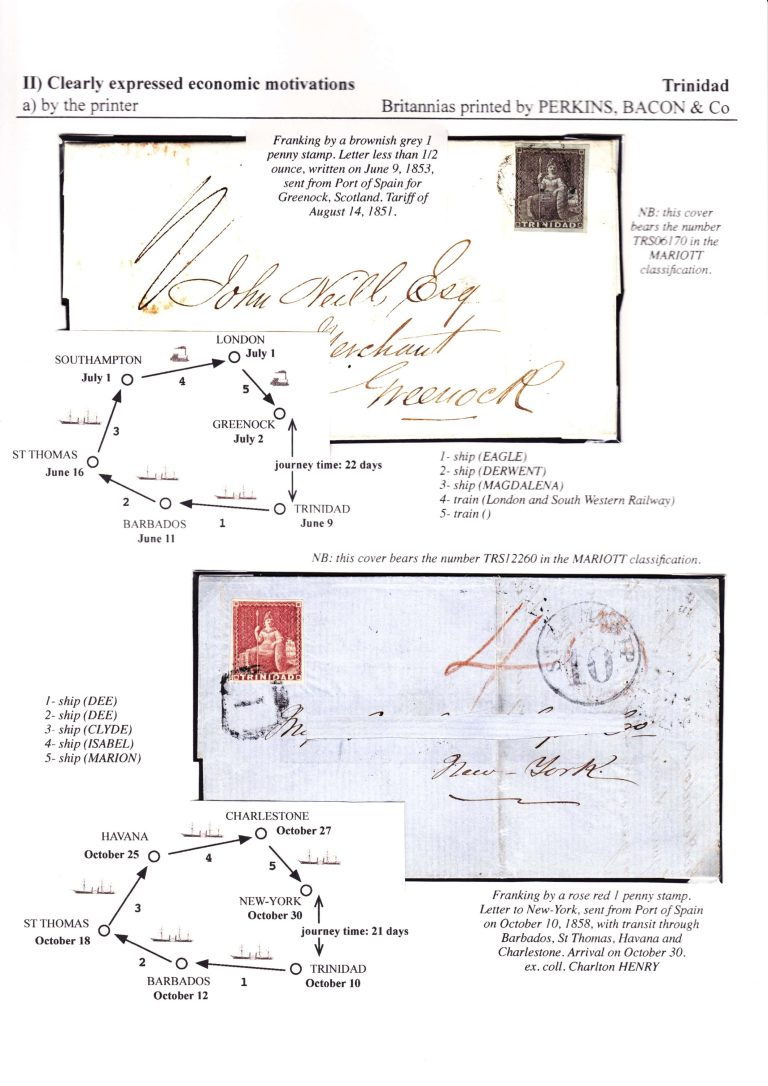 II) Clearly expressed economic motivations
Trinidad
a) by the printer
Britannias printed by PERKINS, BACON & Co
Franking by a brownish grey 1
penny stamp. Letter less than 1/2
ounce, written on June 9, 1853,
sent from Port of Spain for
Greenock, Scotland. Tariff of
August 14, 1851.
TRINIDAD
NB: this cover
bears the number
TRS06170 in the
MARIOTT
classification.
John Neill, Esq
Merchant
Greenock
LONDON
July 1
SOUTHAMPTON
July 1
4
5
GREENOCK
July 2
3
ST THOMAS
June 16
journey time: 22 days
2
1
BARBADOS
June 11
TRINIDAD
June 9
1- ship (EAGLE)
2- ship (DERWENT)
3- ship (MAGDALENA)
4- train (London and South Western Railway)
5- train ()
NB: this cover bears the number TRS12260 in the MARIOTT classification.
TRINIDAD
1
4
STEAMSHIP
10
New-York.
1- ship (DEE)
2- ship (DEE)
3- ship (CLYDE)
4- ship (ISABEL)
5- ship (MARION)
CHARLESTONE
October 27
HAVANA
October 25
4
5
NEW-YORK
October 30
3
ST THOMAS
October 18
journey time: 21 days
2
1
BARBADOS
October 12
TRINIDAD
October 10
Franking by a rose red 1 penny stamp.
Letter to New-York, sent from Port of Spain
on October 10, 1858, with transit through
Barbados, St Thomas, Havana and
Charlestone. Arrival on October 30.
ex. coll. Charlton HENRY